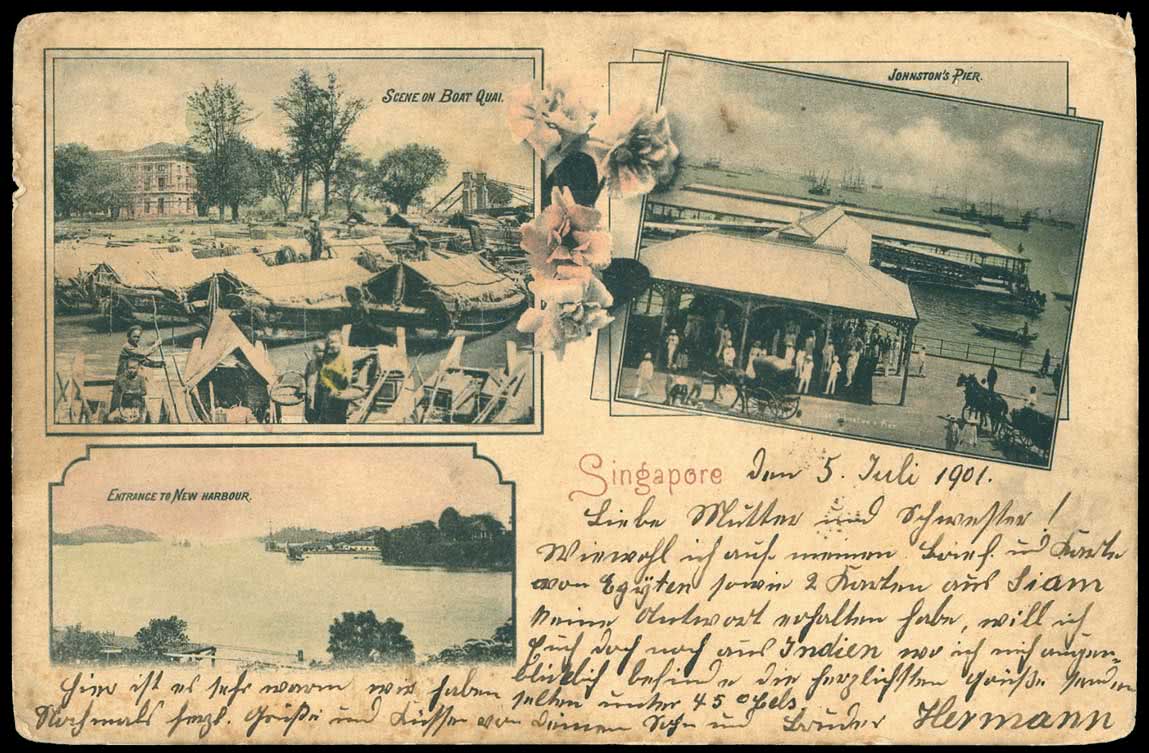 SCENE ON BOAT QUAI.
JOHNSTON'S PIER.
ENTRANCE TO NEW HARBOUR.
Singapore den 5. Juli 1901.
Liebe Mutter und Schwester!
Wiewohl ich auf meinen Brief und Karte
von Egÿten sowie 2 Karten aus Siam
keine Antwort erhalten habe, will ich
Euch doch noch aus Indien wo ich mich augen-
blicklich befinde die herzlichsten Grüße senden
Hier ist es sehr warm wir haben selten unter 45° Cels.
Nochmals herzl. Grüße und Küsse von Deinem Sohn und Bruder Hermann